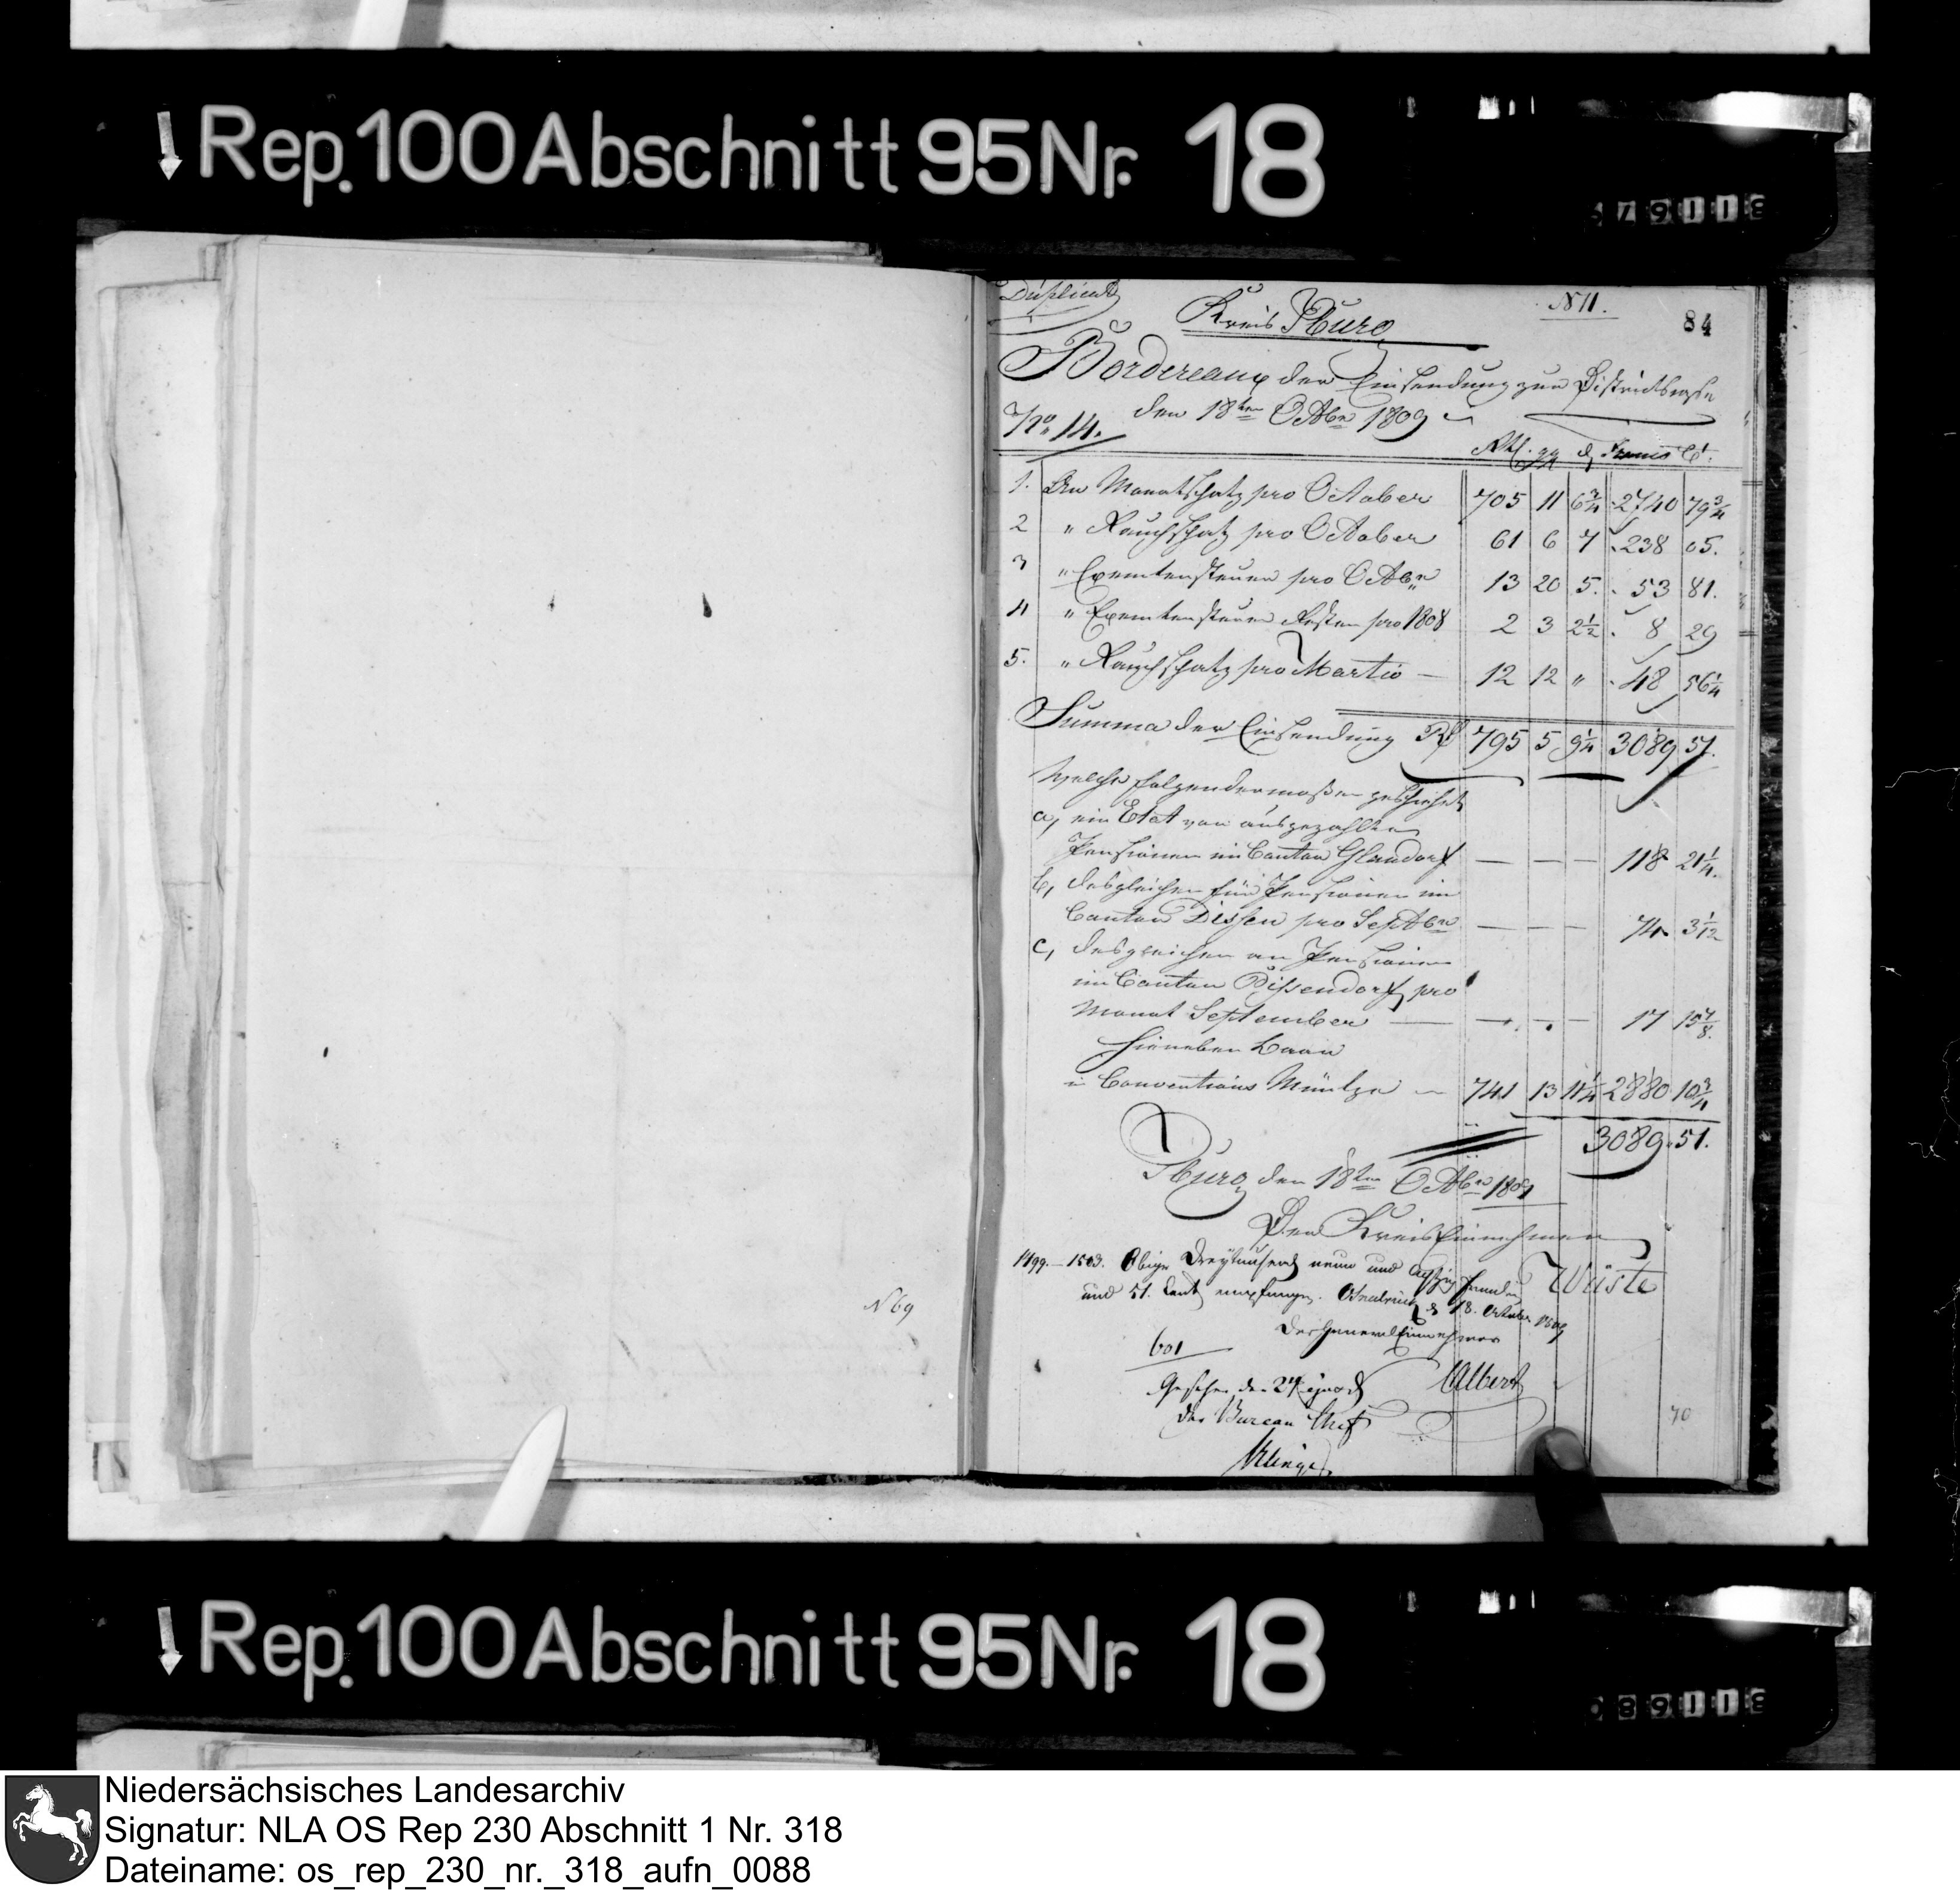 ↓ Rep. 100 Abschnitt 95 Nr. 18
Duplicat
N 11.
84
Kreis Iburg
Bordereaux der Einsendung zur Districtscasse
No 14. den 18ten Octbr 1809
Rthl. gg d Francs Ct.
1. An Monatschatz pro October 705 11 6 3/4 2740 79 3/4
2 " Rauchschatz pro October 61 6 7 238 05.
3 " Exemtensteuer pro Octbr 13 20 5. 53 81.
4 " Exemtensteuer Resten pro 1808 2 3 2 1/2 8 29
5. " Rauchschatz pro Martio — 12 12 " 48 56 1/4
Summa der Einsendung Rt 795 5 9 1/4 3089 51.
Welche folgendermaßen geschiehet
a, ein Etat von ausgezahlten
Pensionen im Canton Glandorf — — — 118 21 1/4.
b, desgleichen für Pensionen im
Canton Dissen pro Septbr — — — 74 3 1/12
c, desgleichen an Pensionen
im Canton Dissendorf pro
Monat September — — — — 17 15 7/8.
Hieneben Baar
in Conventions Müntze — 741 13 11 1/4 2880 10 3/4
3089. 51.
Iburg den 18ten Octbr 1809
Der Kreis Einnehmer
Wüste
1499.—1503. Obige Dreytausend neun und achtzig Franken
und 51. Cent empfangen. Osnabrück d 18. October 1809
Der General Einnehmer
601
Albers
Gesehen den 24
Der Bureau Chef
N 69
70
↓ Rep. 100 Abschnitt 95 Nr. 18
Niedersächsisches Landesarchiv
Signatur: NLA OS Rep 230 Abschnitt 1 Nr. 318
Dateiname: os_rep_230_nr._318_aufn_0088